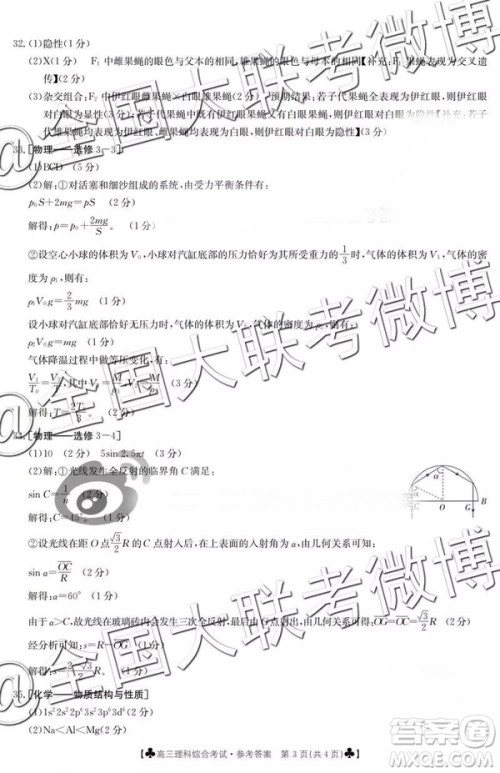 32. (1)隐性(1分)
(2)X(1分) F₁中雌果蝇的眼色与父本的相同,雄果蝇的眼色与母本的相同【补充:F₁表现为交叉遗
传】(2分)
(3)杂交组合:F₂中伊红眼雌果蝇×白眼雄果蝇 预期结果:若子代果蝇全表现为伊红眼,则伊红眼
对白眼为显性;若子代果蝇中
对白眼为隐性】(3分)
33. [物理——选修3-3]
(1)BCD (5分)
(2)解:①对活塞和细沙组成的系统,由受力平衡条件有:
p₀S+2mg=pS (2分)
解得:p=p₀+2mg/S。(1分)
②设空心小球的体积为V₀,小球对汽缸底部的压力恰好为其重力的1/3时,气体的体积为V₁,气体的密
度为ρ₁,则有:
ρ₁V₀g=2/3mg (1分)
设小球对汽缸底部恰好无压力时,气体的体积为V₂,气体的密度为ρ₂,则有:
ρ₂V₀g=mg (1分)
气体降温过程中做等压变化,有:
解得:T= (2分)
34. [物理——选修3-4]
(1)10 (2分) 5sin 2.5πt (3分)
(2)解:①光线发生全反射的临界角C满足:
sin C=1/n (2分)
解得:C=45°。(1分)
②设光线在距O点√3/2R的C点射入后,在上表面的入射角为α,由几何关系可得:
sin α=OC/R (2分)
解得:α=60° (1分)
由于α>C,故光线在玻璃砖内会发生三次全反射,最后由G点射出,由几何关系可得:OG=OC=√3/2R (2分)
经分析可知:s=R-OG (1分)
解得:s=(2-√3)/2R。(1分)
35. [化学——物质结构与性质]
(1)1s²2s²2p⁶3s²3p⁶3d⁶ (2分)
(2)Na<Al<Mg (2分)
高三理科综合考试·参考答案 第3页(共4页)
α
O
G
B
@全国大联考微博
@全国大联考微博
@全国大联考微博
答案圈
MXQE.COM